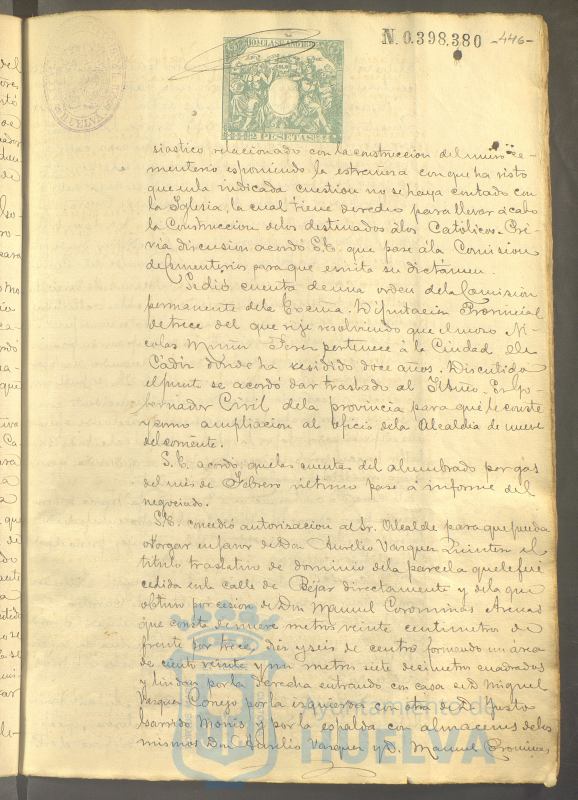 N. 0.398.380 -446-
10ª CLASE AÑO 18
2 PESETAS
HUELVA
siastico relacionado con la construccion del nuevo ce-
menterio esponiendo la estrañeza con que ha visto
que en la indicada cuestion no se haya contado con
la Iglesia, la cual tiene derecho para llevar á cabo
la Construccion de los destinados á los Católicos. Pré-
via discusion acordó S.E. que pase á la Comision
de Cementerios para que emita su dictámen.
Se dió cuenta de una orden de la Comision
permanente de la Exma. Diputacion Provincial
de trece del que rije resolviendo que el mozo Ni-
colas Muñoz Ferer pertenece á la Ciudad de
Cádiz donde ha residido doce años. Discutido
el punto se acordó dar traslado al Iltmo. Sr. Go-
bernador Civil de la provincia para que le conste
y como ampliacion al oficio de la Alcaldia de nueve
del corriente.
S.E. acordó que las cuentas del alumbrado por gas
del mes de Febrero último pase á informe del
negociado.
S.E. concedió autorisacion al Sr. Alcalde para que pueda
otorgar en favor de Don Aurelio Vazquez Quintero el
titulo traslativo de dominio de la parcela que le fué
cedida en la calle de Béjar directamente y de la que
obtuvo por cesion de Don Manuel Corominas Arenas
que consta de nueve metros veinte centimetros de
frente por trece, diez y seis de centro formando un área
de ciento veinte y un metros siete decimetros cuadrados
y lindan por la derecha entrando con casa de D. Miguel
Vazquez Conejo por la izquierda con otra de D. Justo
Garrido Moris y por la espalda con almacenes de los
mismos Don Aurelio Vazquez y D. Manuel Corominas
Ayuntamiento de
HUELVA